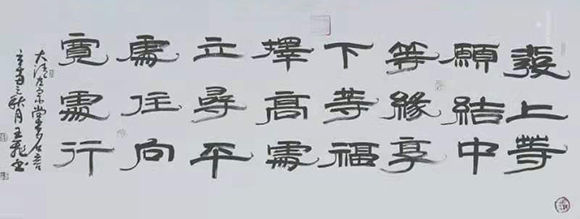 發上等
願結中
等緣享
下等福
擇高處
立尋平
處住向
寬處行
大清左宗棠
之秋月王